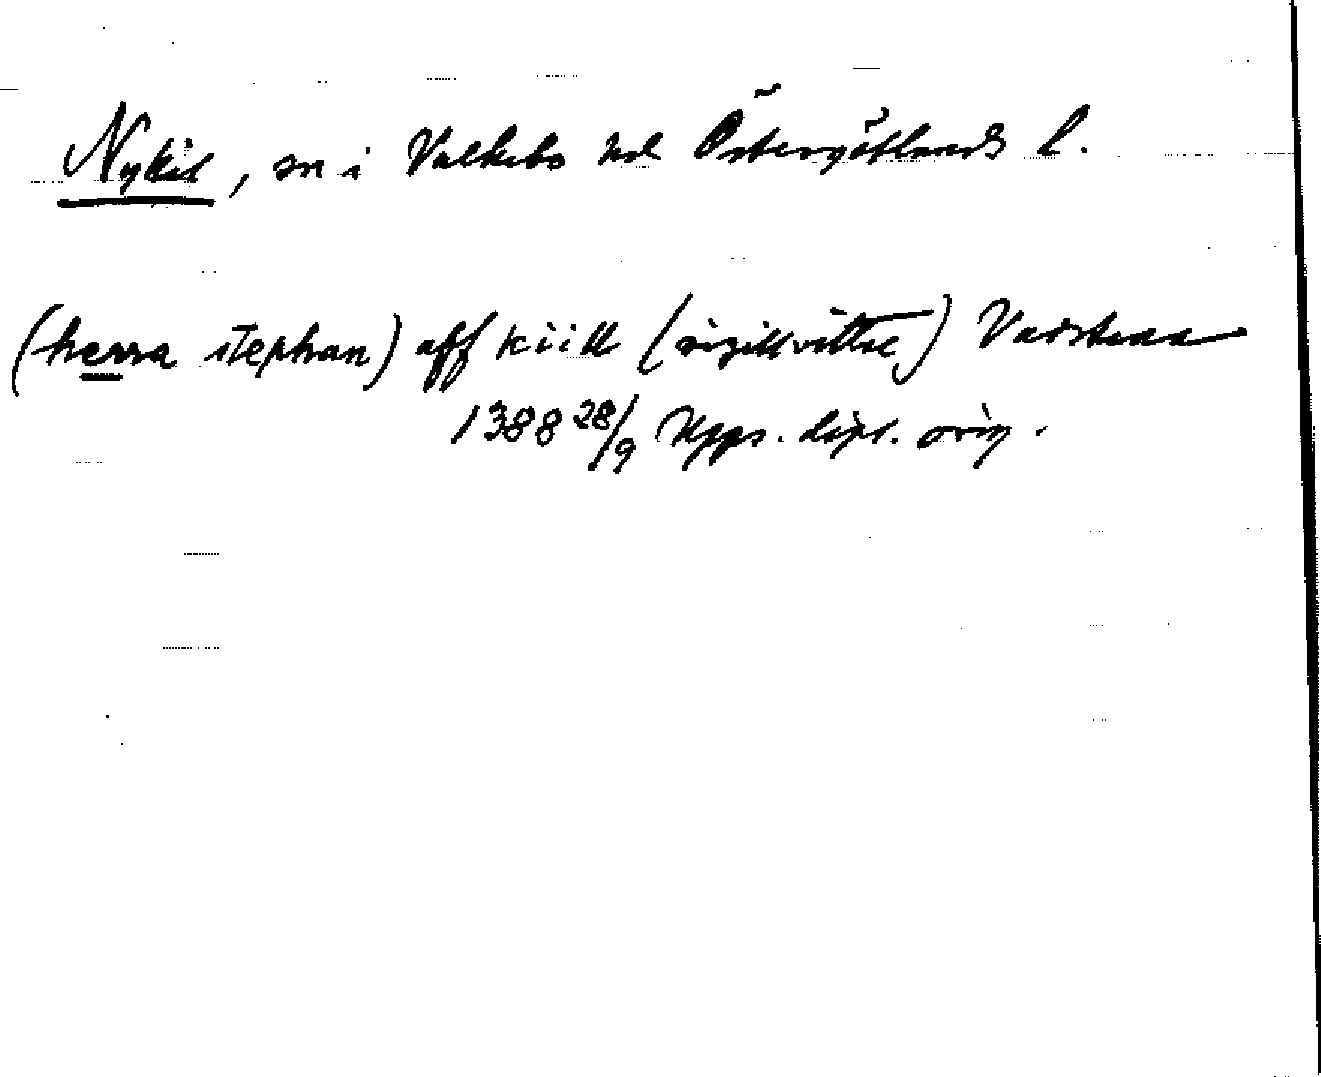 Nykil, sn i Valkebo hd Östergötlands l.
(herra stephan) aff kiill (sigillvittne) Vadstena
1388 28/9 Upps. dipl. orig.